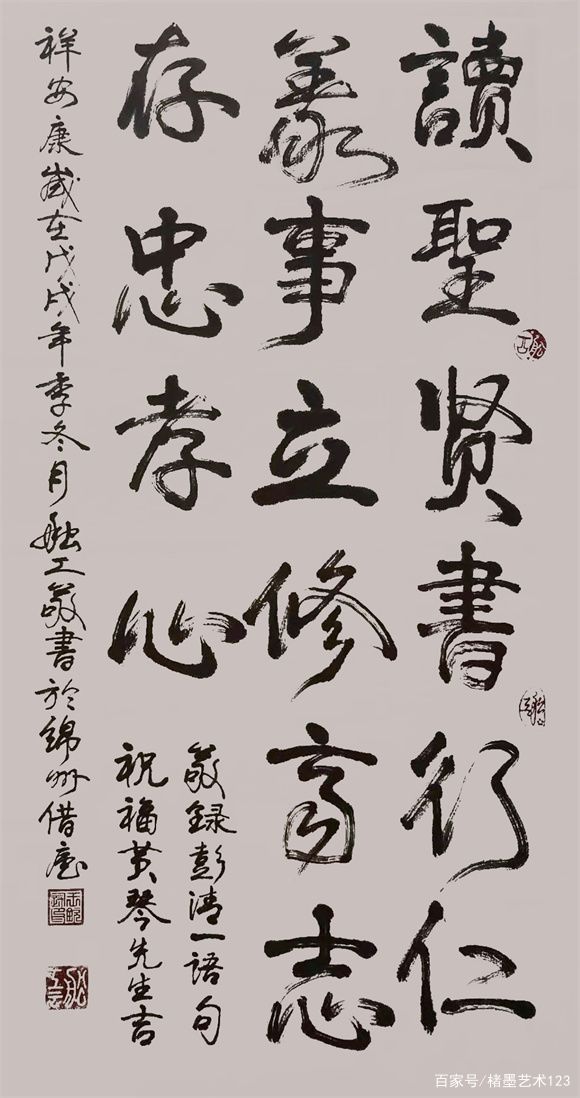 讀聖贤書行仁
義事立修高志
存忠孝心
敬録彭清一語句
祝福黄琴先生吉
祥安康歲在戊戌年季冬月工敬書於錦州借
百家号/楮墨艺术123